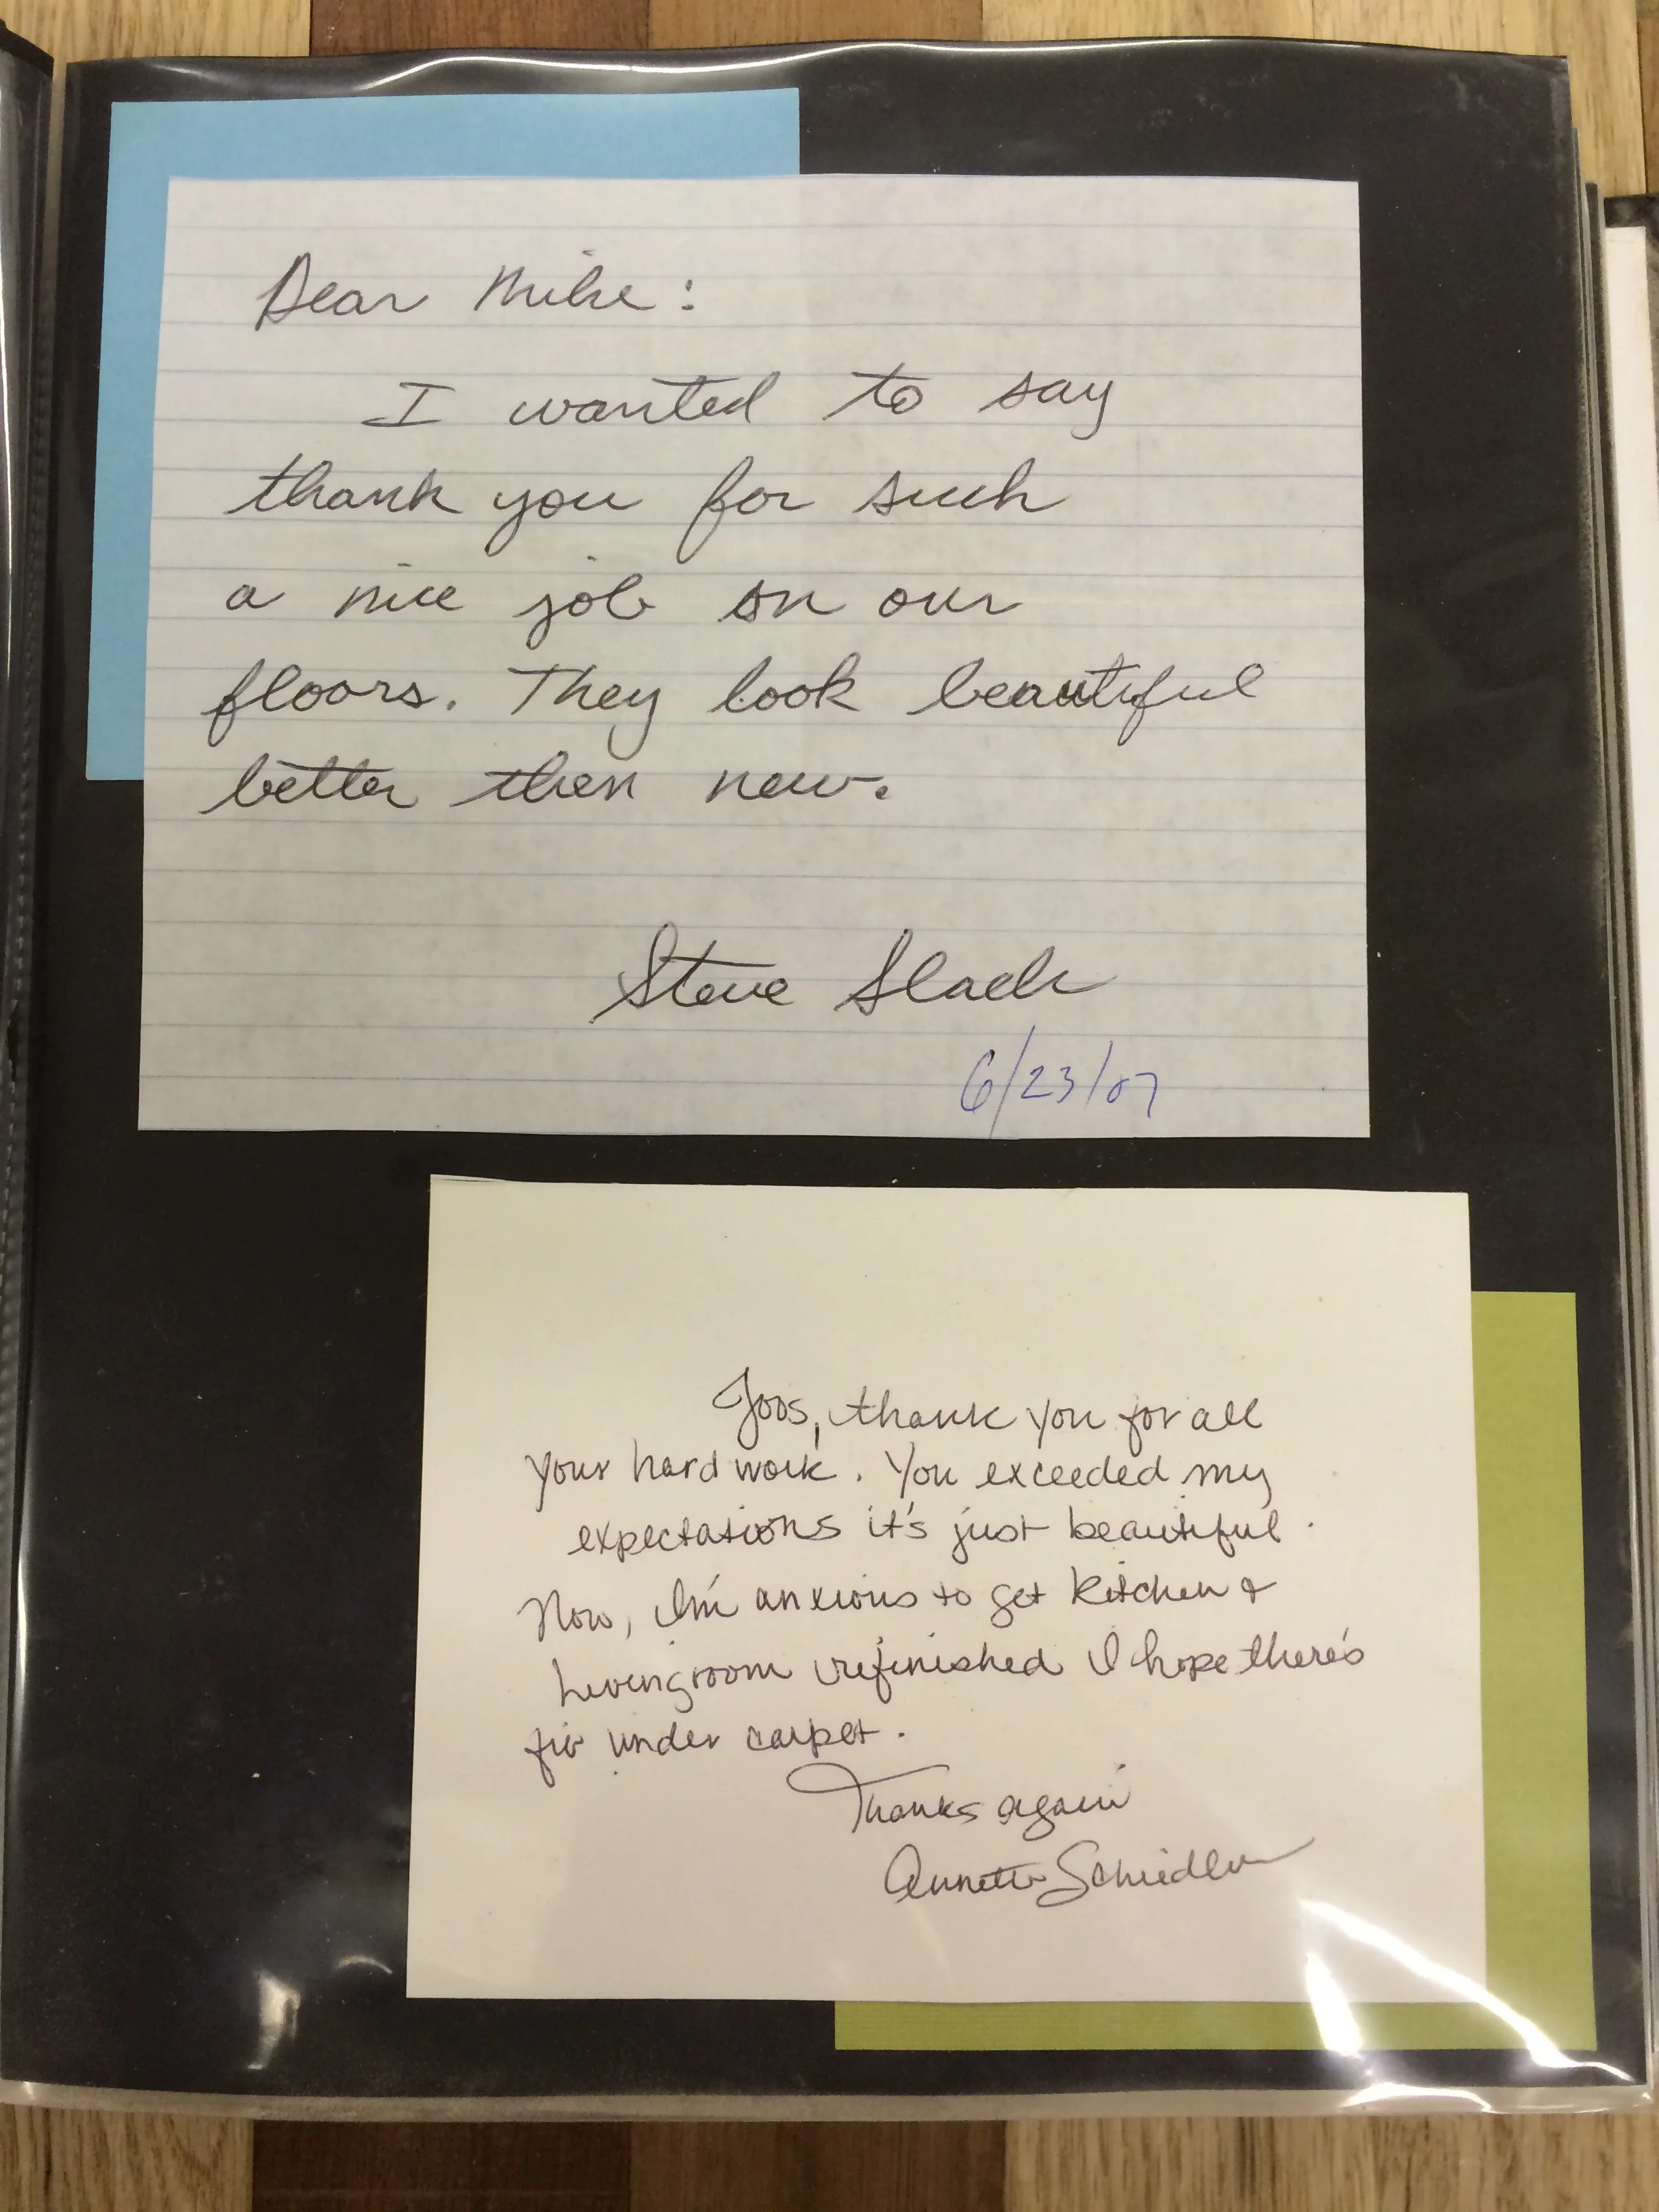 Dear Mike:
I wanted to say
thank you for such
a nice job on our
floors. They look beautiful
better then new.
Steve Slack
6/23/07
Joos, thank you for all
your hard work. You exceeded my
expectations it's just beautiful.
Now, I'm anxious to get kitchen &
Livingroom refinished I hope there's
fir under carpet.
Thanks again
Annette